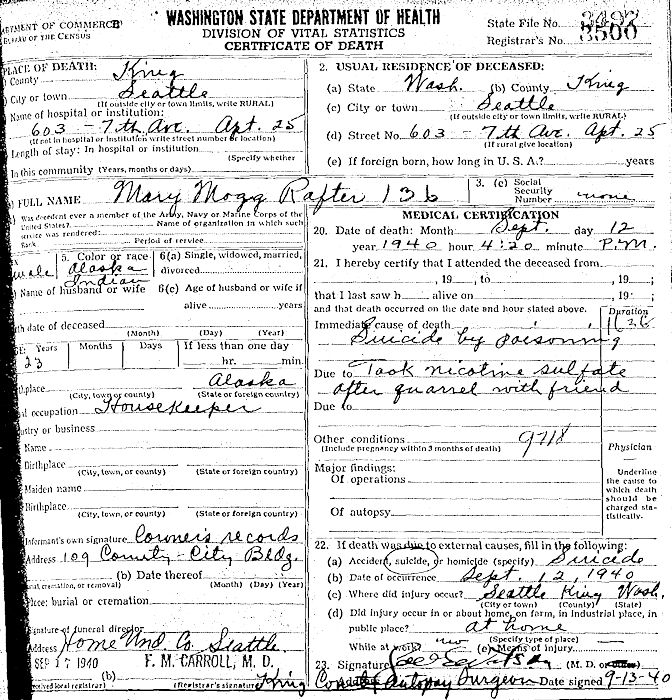 DEPARTMENT OF COMMERCE
BUREAU OF THE CENSUS
WASHINGTON STATE DEPARTMENT OF HEALTH
DIVISION OF VITAL STATISTICS
CERTIFICATE OF DEATH
State File No.
Registrar's No. 3500
PLACE OF DEATH:
County King
City or town Seattle
(If outside city or town limits, write RURAL)
Name of hospital or institution:
603 - 7th Ave. Apt. 25
(If not in hospital or institution write street number or location)
Length of stay: In hospital or institution
(Specify whether
In this community (Years, months or days)
2. USUAL RESIDENCE OF DECEASED:
(a) State Wash. (b) County King
(c) City or town Seattle
(If outside city or town limits, write RURAL)
(d) Street No. 603 - 7th Ave. Apt. 25
(If rural give location)
(e) If foreign born, how long in U. S. A.? years
FULL NAME Mary Mogg Rafter 136
3. (c) Social Security Number none
Was decedent ever a member of the Army, Navy or Marine Corps of the
United States? Name of organization in which such
service was rendered:
Rank Period of service
5. Color or race Alaska Indian
6(a) Single, widowed, married,
divorced
Name of husband or wife
6(c) Age of husband or wife if
alive years
th date of deceased
(Month) (Day) (Year)
GE: Years Months Days If less than one day
23 hr. min.
thplace Alaska
(City, town or county) (State or foreign country)
al occupation Housekeeper
stry or business
Name
Birthplace
(City, town, or county) (State or foreign country)
Maiden name
Birthplace
(City, town, or county) (State or foreign country)
Informant's own signature Coroner's records
Address 109 County-City Bldg.
ial, cremation, or removal) (b) Date thereof
(Month) (Day) (Year)
Place: burial or cremation
Signature of funeral director
Address Home Und. Co. Seattle.
SEP 17 1940 F. M. CARROLL, M. D.
(b)
ceived local registrar) (Registrar's signature) King
MEDICAL CERTIFICATION
20. Date of death: Month Sept. day 12
year 1940 hour 4:20 minute P.M.
21. I hereby certify that I attended the deceased from
, 19 , to , 19 ;
that I last saw h alive on , 19 ;
and that death occurred on the date and hour stated above.
Duration
Immediate cause of death
Suicide by poisoning
Due to Took nicotine sulfate
after quarrel with friend
Due to
Other conditions
(Include pregnancy within 3 months of death)
Physician
Major findings:
Of operations
Of autopsy
Underline
the cause to
which death
should be
charged sta-
tistically.
22. If death was due to external causes, fill in the following:
(a) Accident, suicide, or homicide (specify) Suicide
(b) Date of occurrence Sept. 12, 1940
(c) Where did injury occur? Seattle King Wash.
(City or town) (County) (State)
(d) Did injury occur in or about home, on farm, in industrial place, in
public place? at home
(Specify type of place)
While at work? no (e) Means of injury
23. Signature (M. D.
Autopsy Surgeon Date signed 9-13-40